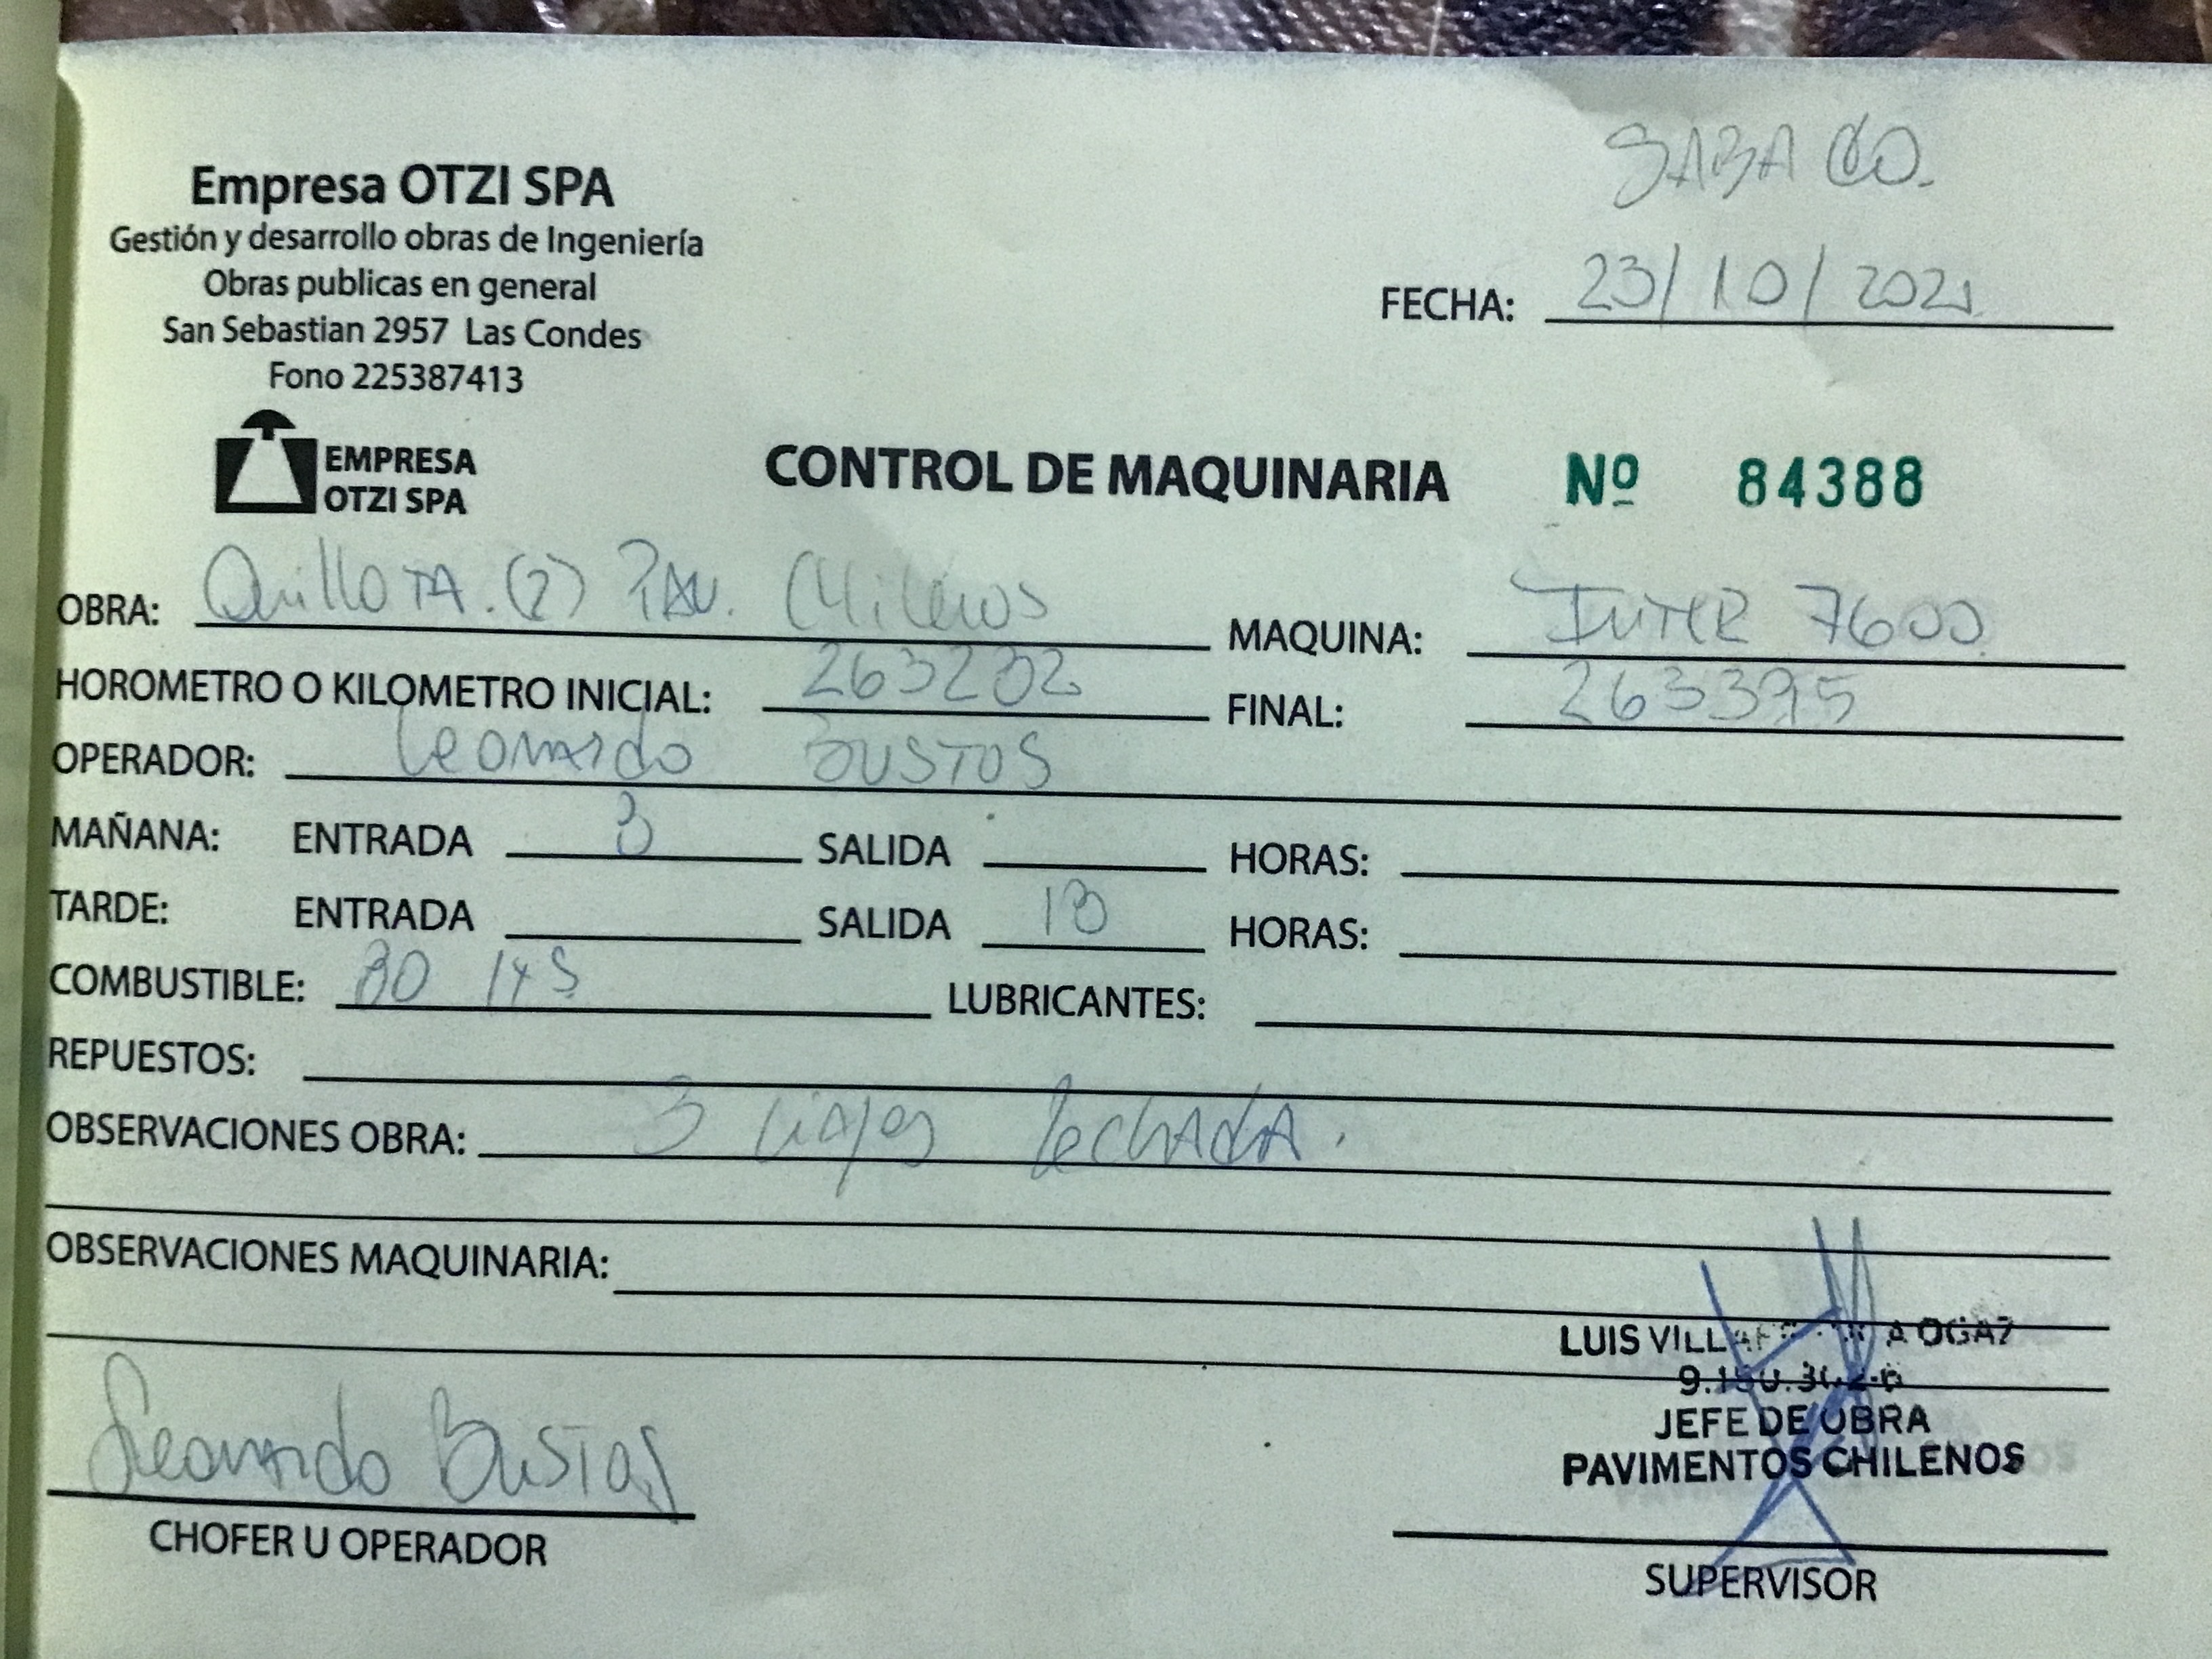 SABADO.
Empresa OTZI SPA
Gestión y desarrollo obras de Ingeniería
Obras publicas en general
San Sebastian 2957 Las Condes
Fono 225387413
FECHA: 23/10/2021
EMPRESA
OTZI SPA
CONTROL DE MAQUINARIA Nº 84388
OBRA: Quillota. (2) Pav. Chilenos MAQUINA: INTER 7600
HOROMETRO O KILOMETRO INICIAL: 263202 FINAL: 263395
OPERADOR: Leonardo BUSTOS
MAÑANA: ENTRADA SALIDA HORAS:
TARDE: ENTRADA SALIDA 18 HORAS:
COMBUSTIBLE: 80 lts LUBRICANTES:
REPUESTOS:
OBSERVACIONES OBRA: 3 viajes lechada.
OBSERVACIONES MAQUINARIA:
LUIS OGAZ
JEFE DE OBRA
PAVIMENTOS CHILENOS
Leonardo Bustos
CHOFER U OPERADOR
SUPERVISOR